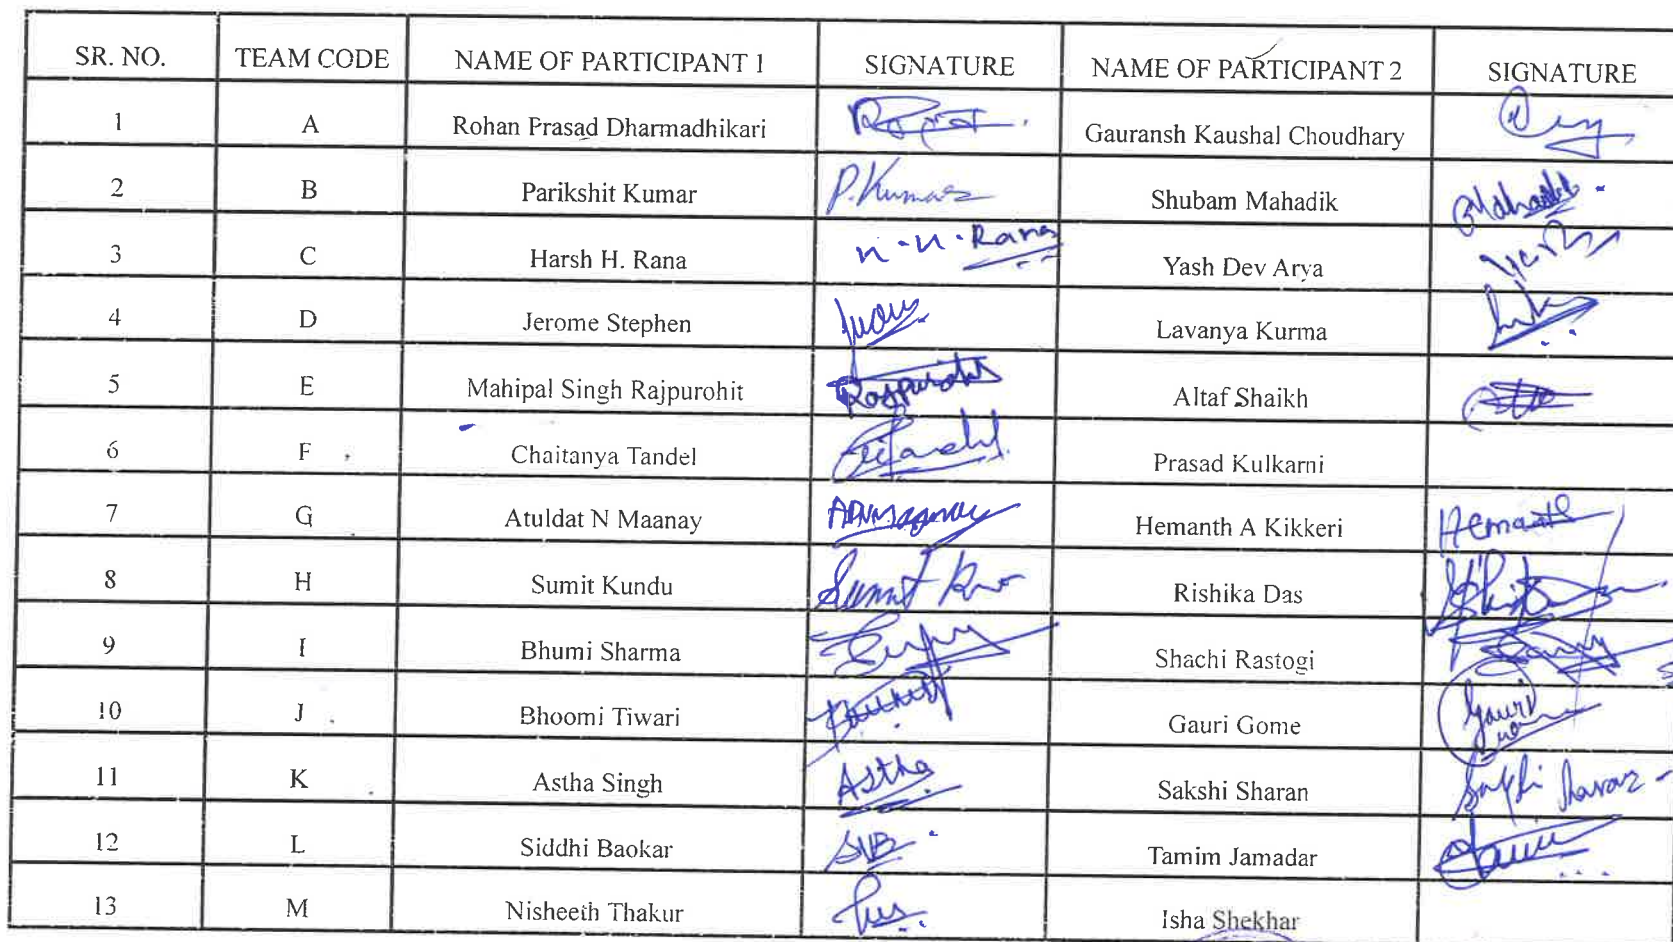 SR. NO. TEAM CODE NAME OF PARTICIPANT 1 SIGNATURE NAME OF PARTICIPANT 2 SIGNATURE
1 A Rohan Prasad Dharmadhikari Gauransh Kaushal Choudhary
2 B Parikshit Kumar P.Kumar Shubam Mahadik Mahadik
3 C Harsh H. Rana H.H.Rana Yash Dev Arya
4 D Jerome Stephen Lavanya Kurma
5 E Mahipal Singh Rajpurohit Rajpurohit Altaf Shaikh
6 F Chaitanya Tandel Prasad Kulkarni
7 G Atuldat N Maanay Hemanth A Kikkeri Hemanth
8 H Sumit Kundu Sumit Rishika Das
9 I Bhumi Sharma Shachi Rastogi
10 J Bhoomi Tiwari Gauri Gome Gauri
11 K Astha Singh Astha Sakshi Sharan Sakshi Sharan
12 L Siddhi Baokar SVB Tamim Jamadar
13 M Nisheeth Thakur Isha Shekhar